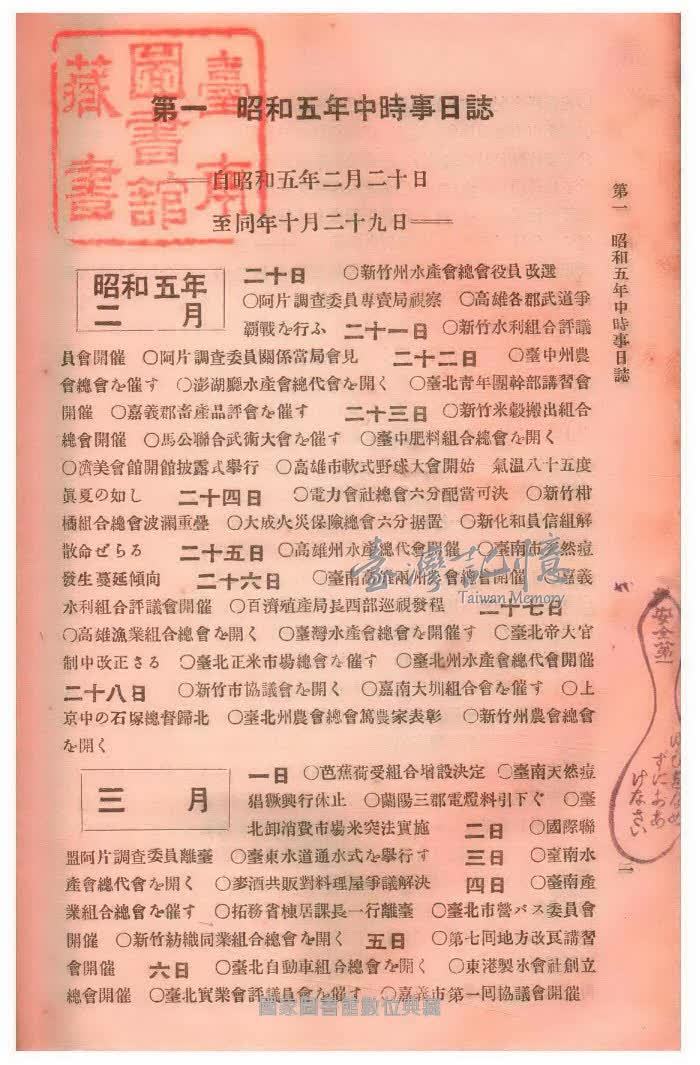 臺南
圖書館
藏書
第一　昭和五年中時事日誌
——自昭和五年二月二十日
至同年十月二十九日——
昭和五年
二　月
二十日　〇新竹州水產會總會役員改選
〇阿片調查委員專賣局視察　〇高雄各郡武道爭
覇戰を行ふ　二十一日　〇新竹水利組合評議
員會開催　〇阿片調查委員關係當局會見　二十二日　〇臺中州農
會總會を催す　〇澎湖廳水產會總代會を開く　〇臺北青年團幹部講習會
開催　〇嘉義郡畜產品評會を催す　二十三日　〇新竹米穀搬出組合
總會開催　〇馬公聯合武術大會を催す　〇臺中肥料組合總會を開く
〇濟美會館開館披露式擧行　〇高雄市軟式野球大會開始　氣溫八十五度
眞夏の如し　二十四日　〇電力會社總會六分配當可決　〇新竹柑
橘組合總會波瀾重疊　〇大成火災保險總會六分据置　〇新化和員信組解
散命ぜらる　二十五日　〇高雄州水產總代會開催　〇臺南市天然痘
發生蔓延傾向　二十六日　〇臺南高雄兩州農會總會開催　〇嘉義
水利組合評議會開催　〇百濟殖產局長西部巡視發程　二十七日
〇高雄漁業組合總會を開く　〇臺灣水產會總會を開催す　〇臺北帝大官
制中改正さる　〇臺北正米市場總會を催す　〇臺北州水產會總代會開催
二十八日　〇新竹市協議會を開く　〇嘉南大圳組合會を催す　〇上
京中の石塚總督歸北　〇臺北州農會總會篤農家表彰　〇新竹州農會總會
を開く
三　月
一日　〇芭蕉荷受組合增設決定　〇臺南天然痘
猖獗興行休止　〇蘭陽三郡電燈料引下ぐ　〇臺
北卸消費市場米突法實施　二日　〇國際聯
盟阿片調查委員離臺　〇臺東水道通水式を擧行す　三日　〇臺南水
產會總代會を開く　〇麥酒共販對料理屋爭議解決　四日　〇臺南產
業組合總會を催す　〇拓務省棟居課長一行離臺　〇臺北市營バス委員會
開催　〇新竹紡織同業組合總會を開く　五日　〇第七回地方改良講習
會開催　六日　〇臺北自動車組合總會を開く　〇東港製氷會社創立
總會開催　〇臺北實業會評議員會を催す　〇嘉義市第一回協議會開催
第一　昭和五年中時事日誌
一
安全第一
ずにおあ
けなさい
臺灣記憶
Taiwan Memory
國家圖書館數位典藏